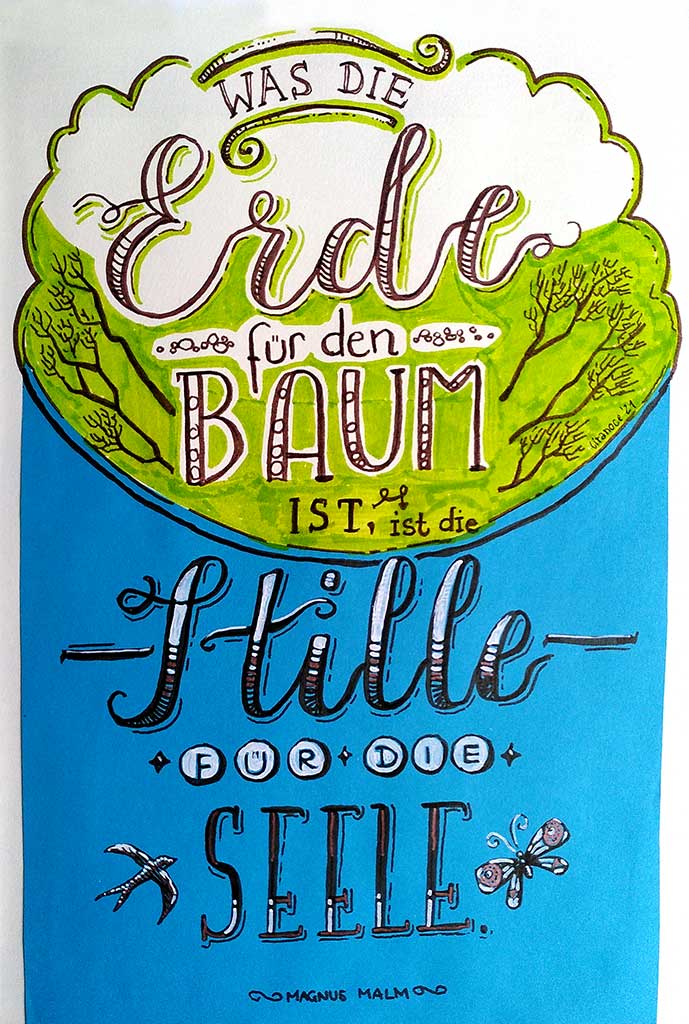 WAS DIE
Erde
für den
BAUM
IST, ist die
Stille
FÜR DIE
SEELE.
MAGNUS MALM